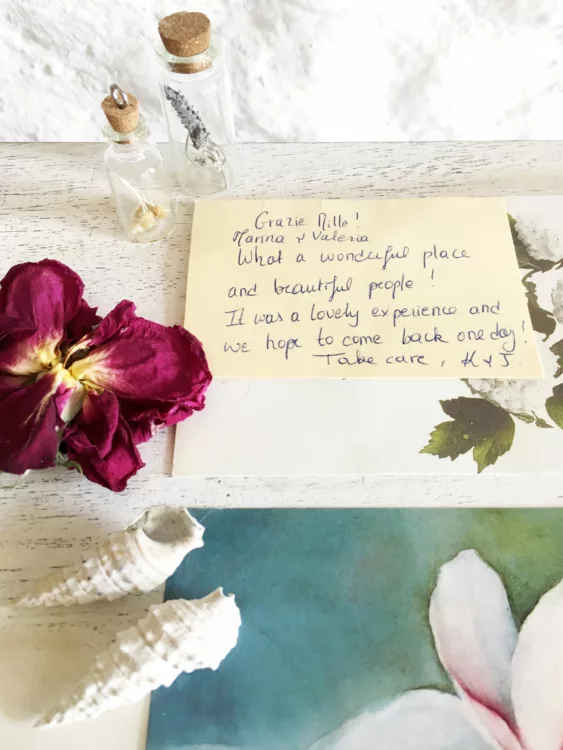 Grazie Mille!
Manna & Valeria
What a wonderful place
and beautiful people!
It was a lovely experience and
we hope to come back one day!
Take care, K & J.